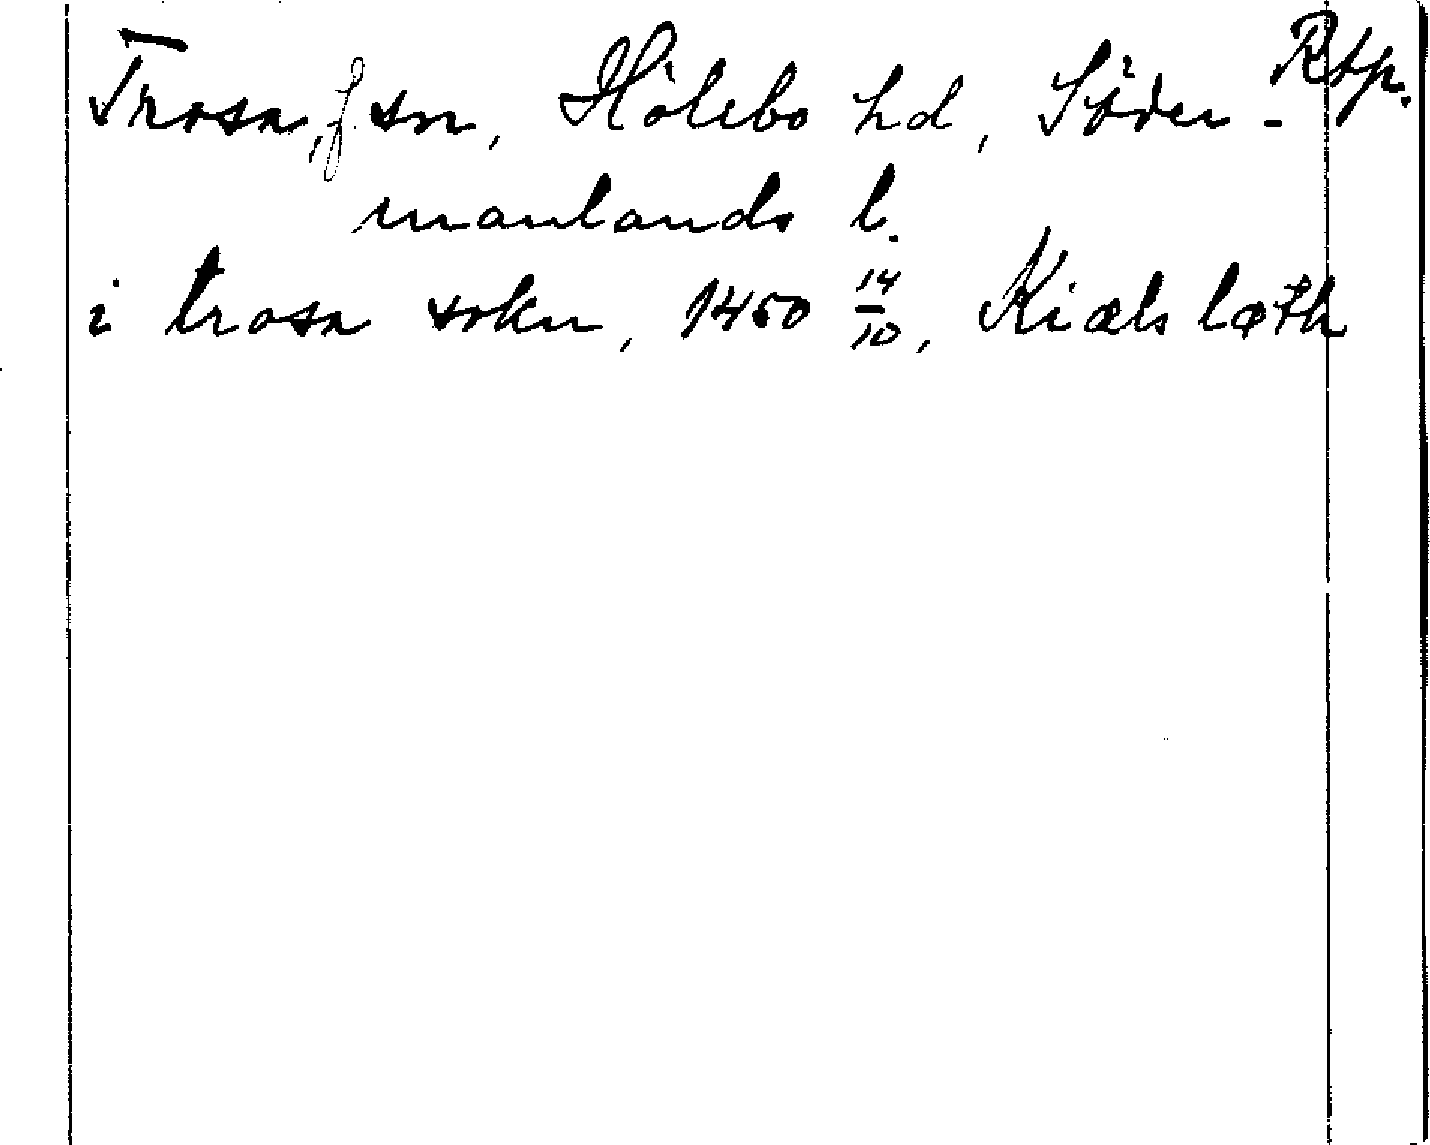 Trosa, f. sn, Hölebo hd, Söder- Rtp.
manlands l.
i trosa sokn, 1450 14/10, Kiæls læth